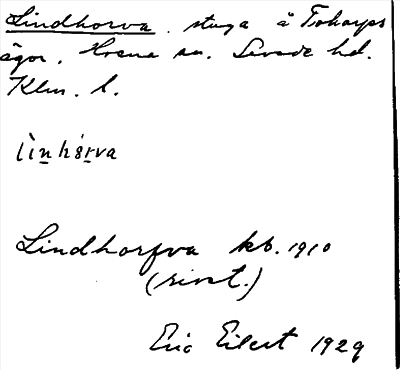 Lindhorva. stuga å Toharps
ägor. Hvena sn. Sevede hd.
Klm. l.
lìnhárva
Lindhorfva kb. 1910
(rivet.)
Eric Eilert 1929